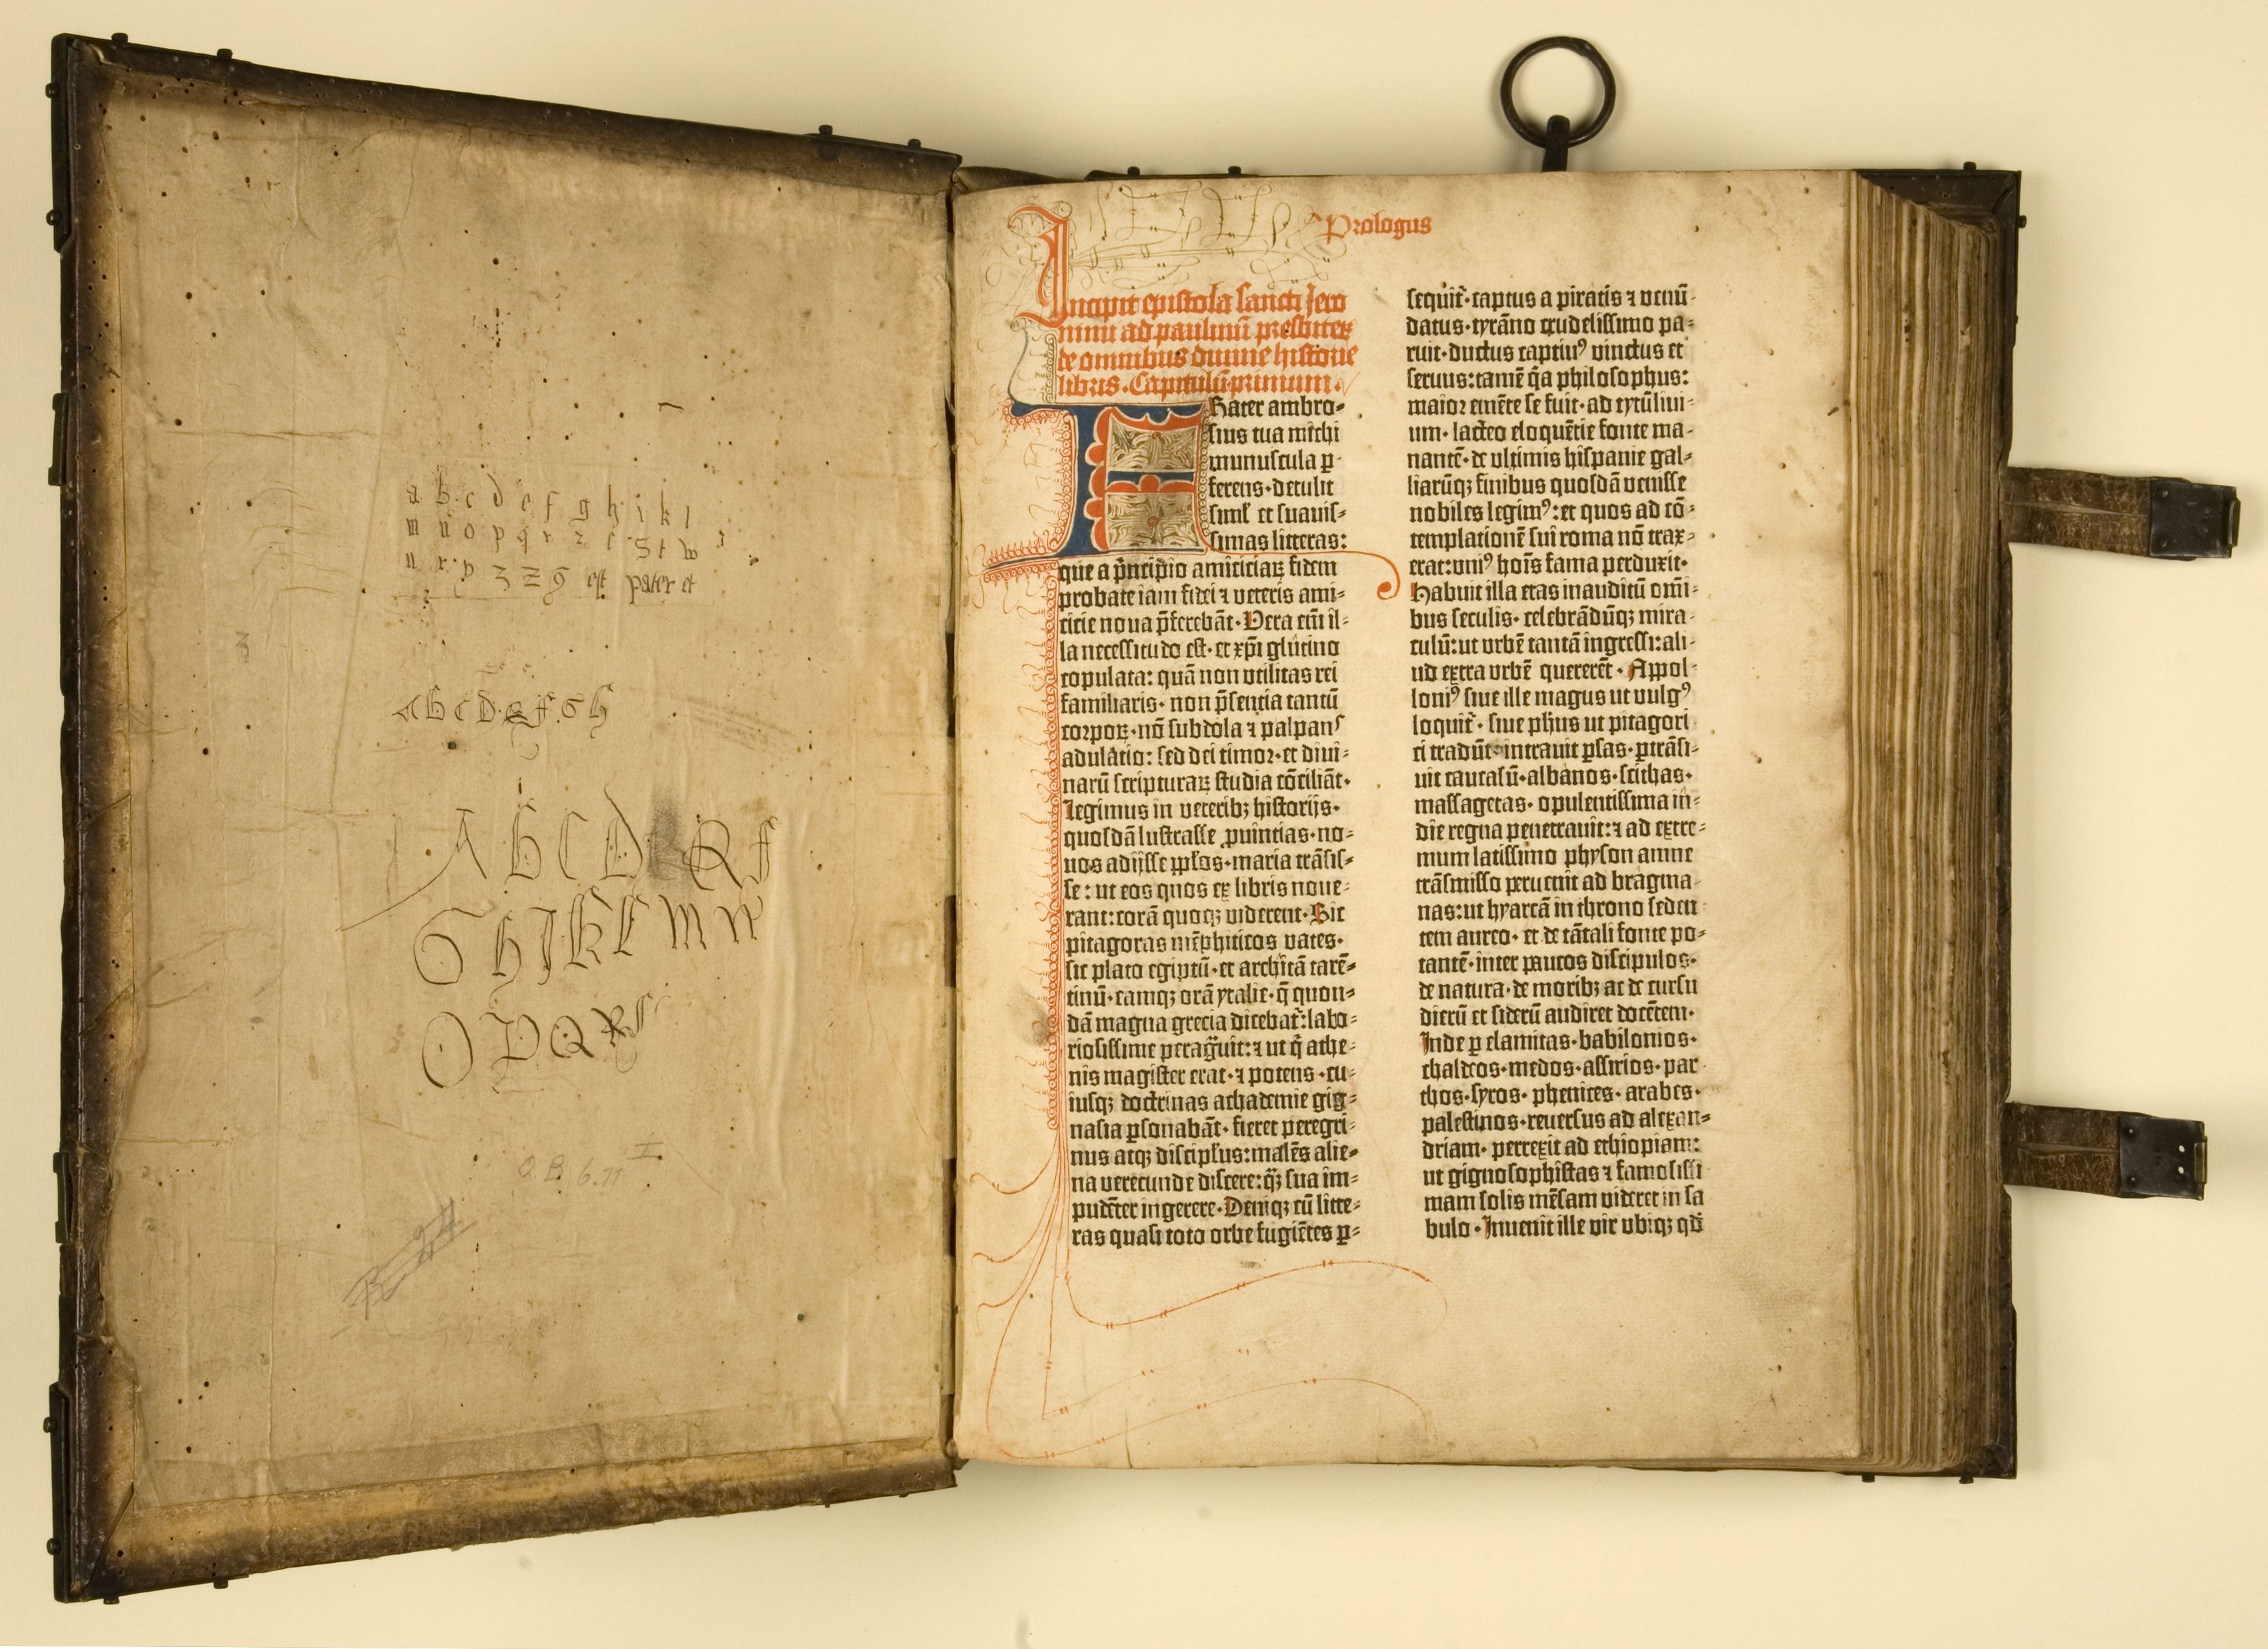 a b c d e f g h i k l
m n o p q r z c s t w
u x y z est pater et
A b c D e f G h
A b C D E f
G h I K L M N
O P Q R S
Prologus
Incipit epistola sancti Jero
nimi ad paulinū presbiteꝝ
de omnibus diuine historie
libris. Capitulū primum.
Frater ambro-
sius tua michi
munuscula ꝑ-
ferens· detulit
siml̕ et suauis-
simas litteras:
que a prīcipio amiciciaꝝ fidem
probate iam fidei ⁊ veteris ami-
cicie noua p̄ferebāt· Vera em̄ il-
la necessitudo est· et xp̄i glutino
copulata: quā non vtilitas rei
familiaris· non p̄sentia tantū
corpoꝝ· nō subdola ⁊ palpans
adulatio: sed dei timor· et diui-
narū scripturaꝝ studia cōciliāt·
Legimus in veteribꝫ historijs·
quosdā lustrasse ꝓuincias· no-
uos adijsse pp̄los· maria trāsis-
se: ut eos quos ex libris noue-
rant: corā quoqꝫ viderent· Sic
pitagoras mēphiticos vates·
sic plato egiptū· et architā tarē-
tinū· eamqꝫ orā ytalie· q̄ quon-
dā magna grecia dicebat᷑: labo-
riosissime peragͣuit: ⁊ ut q̄ athe-
nis magister erat· ⁊ potens· cu-
iusqꝫ doctrinas achademie gig-
nasia ꝑsonabāt· fieret peregri-
nus atqꝫ discipl̕us: malēs alie-
na verecunde discere: q̄ꝫ sua im-
pudēter ingerere· Deniqꝫ cū litte-
ras quasi toto orbe fugiētes ꝑ-
sequit᷑· captus a piratis ⁊ venū-
datus· tyrāno crudelissimo pa-
ruit· ductus captiuꝰ vinctus et
seruus: tamē q̄a philosophus:
maior emēte se fuit· ad tytūliui-
um· lacteo eloquētie fonte ma-
nantē· de vltimis hispanie gal-
liarūqꝫ finibus quosdā venisse
nobiles legimꝰ: et quos ad cō-
templationē sui roma nō trax-
erat: vniꝰ hoīs fama perduxit·
Habuit illa etas inauditū omī-
bus seculis· celebrādūqꝫ mira-
culū: ut vrbē tantā ingressi: ali-
ud extra vrbē quererēt· Appol-
loniꝰ siue ille magus ut vulgꝰ
loquit᷑· siue ph̄us ut pitagori
ci tradūt· intrauit ꝑsas· ꝑtrāsi-
uit caucasū· albanos· scithas·
massagetas· opulentissima in-
die regna penetrauit: ⁊ ad extre-
mum latissimo physon amne
trāsmisso peruenit ad bragma-
nas: ut hyarcā in throno seden-
tem aureo· et de tātali fonte po-
tantē· inter paucos discipulos·
de natura· de moribꝫ ac de cursu
dierū et siderū audiret docētem·
Inde ꝑ elamitas· babilonios·
chaldeos· medos· assirios· par-
thos· syros· phenices· arabes·
palestinos· reuersus ad alexan-
driam· perrexit ad ethiopiam:
ut gignosophistas ⁊ famosissi
mam solis mēsam videret in sa
bulo· Inuenit ille vir vbiqꝫ qd̄